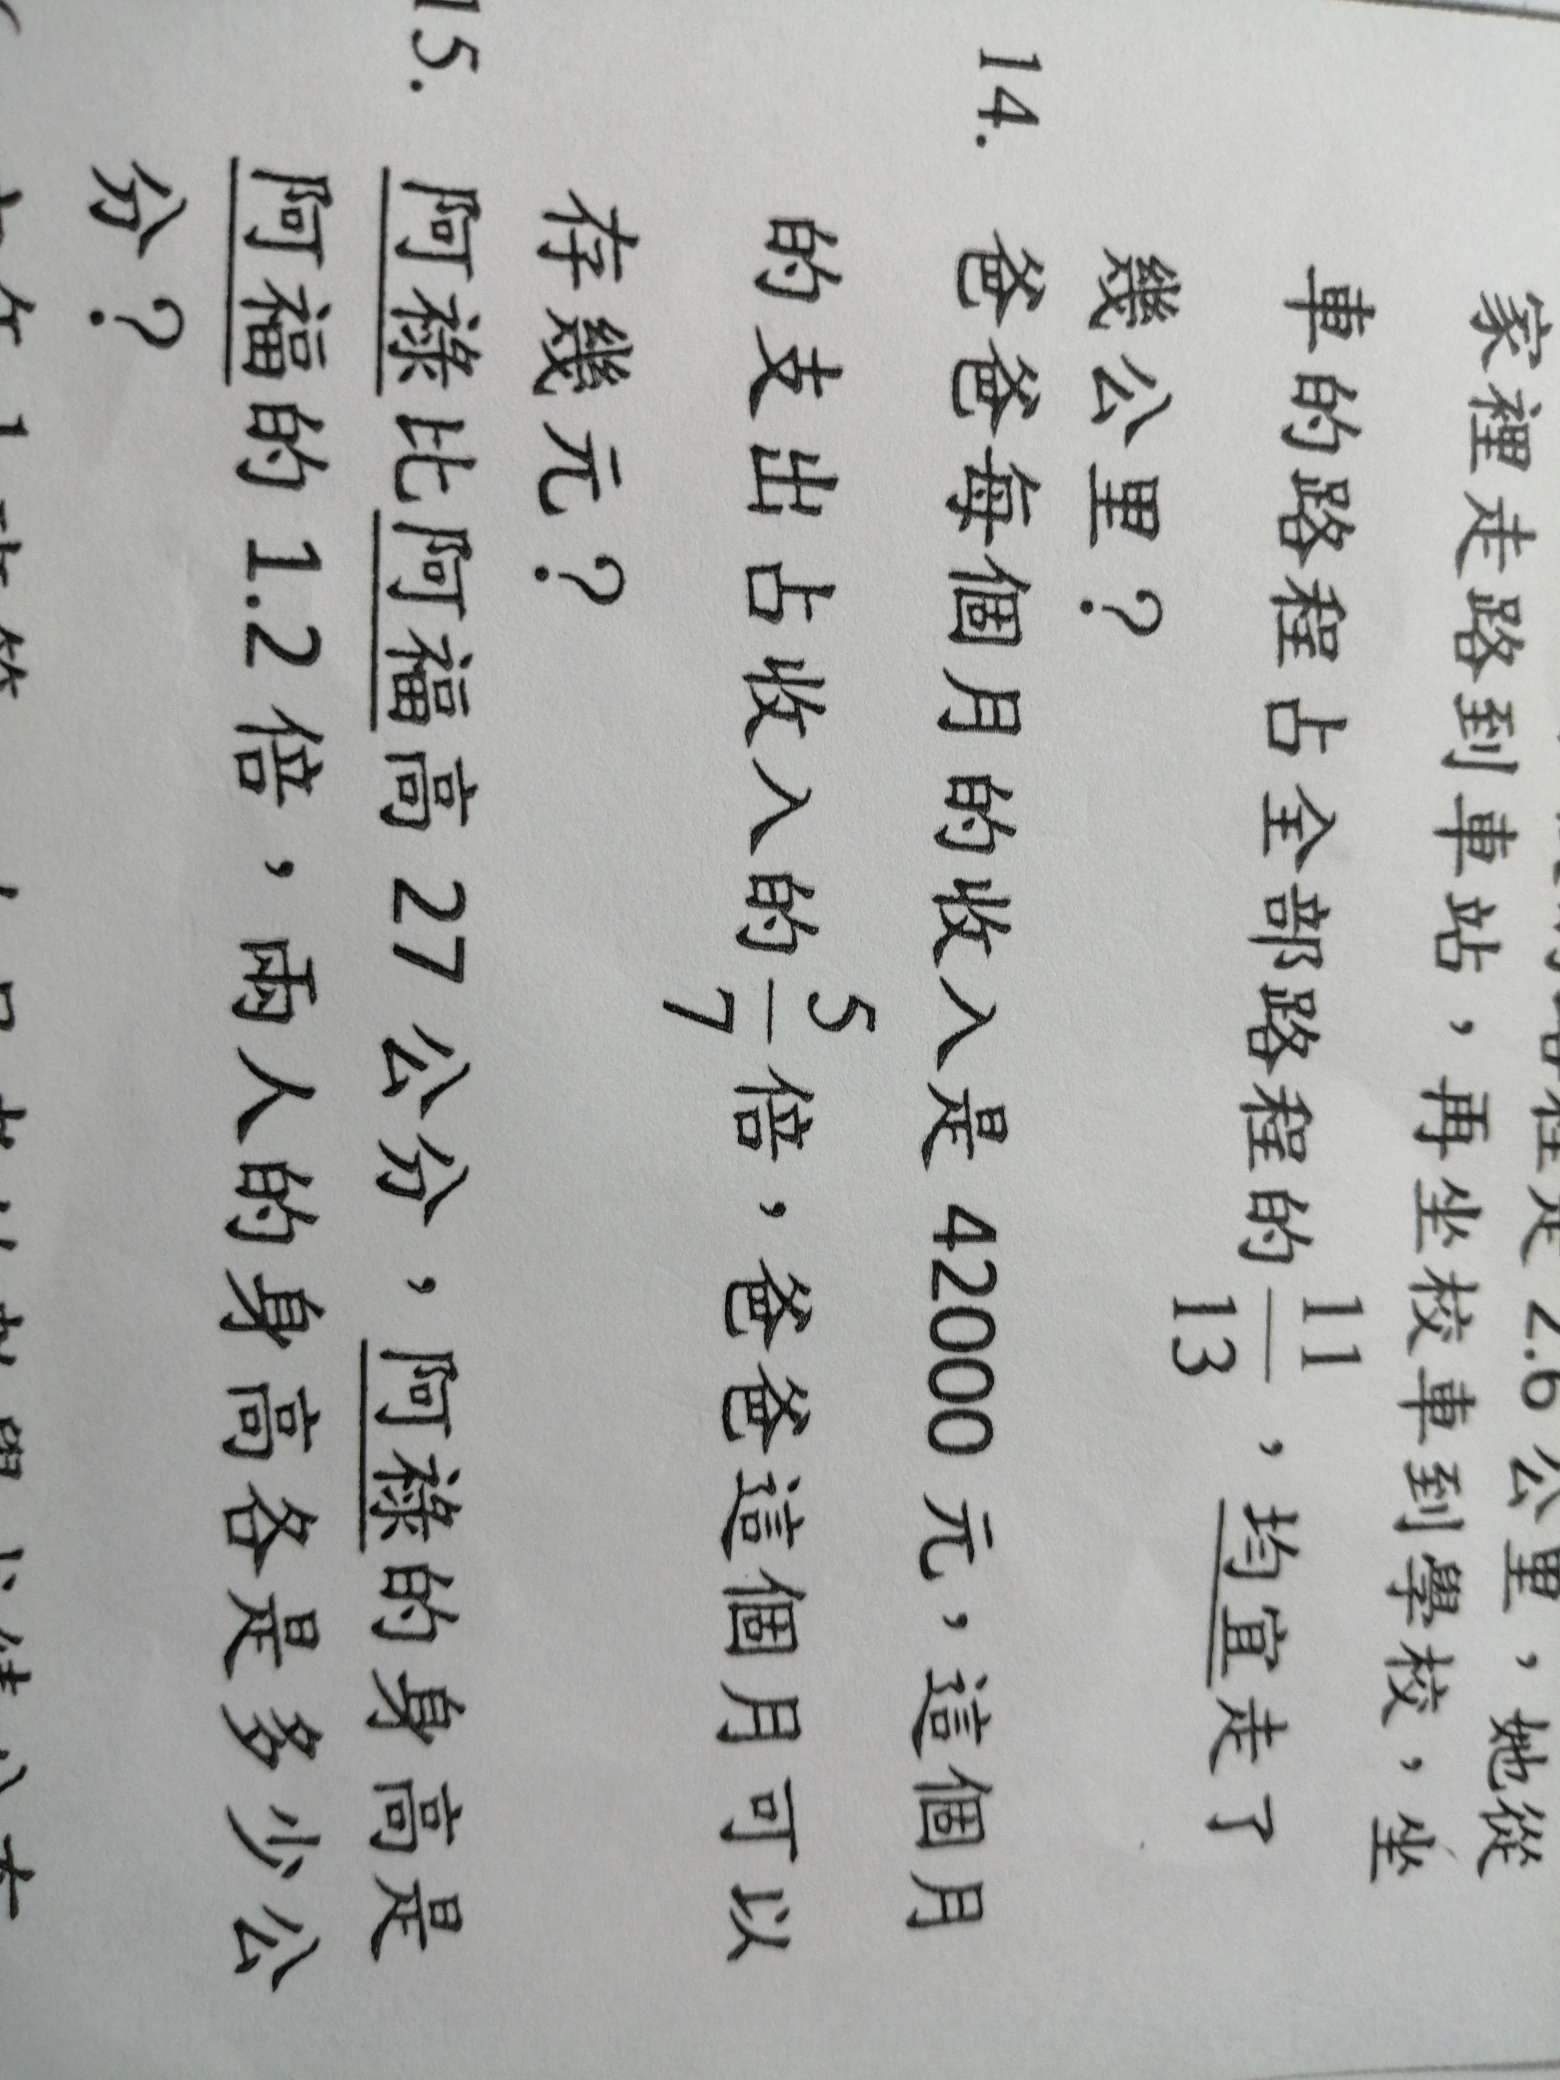 路程是 2.6 公里，她從
家裡走路到車站，再坐校車到學校，坐
車的路程占全部路程的 11/13，均宜走了
幾公里？
14. 爸爸每個月的收入是 42000 元，這個月
的支出占收入的 5/7 倍，爸爸這個月可以
存幾元？
15. 阿祿比阿福高 27 公分，阿祿的身高是
阿福的 1.2 倍，兩人的身高各是多少公
分？